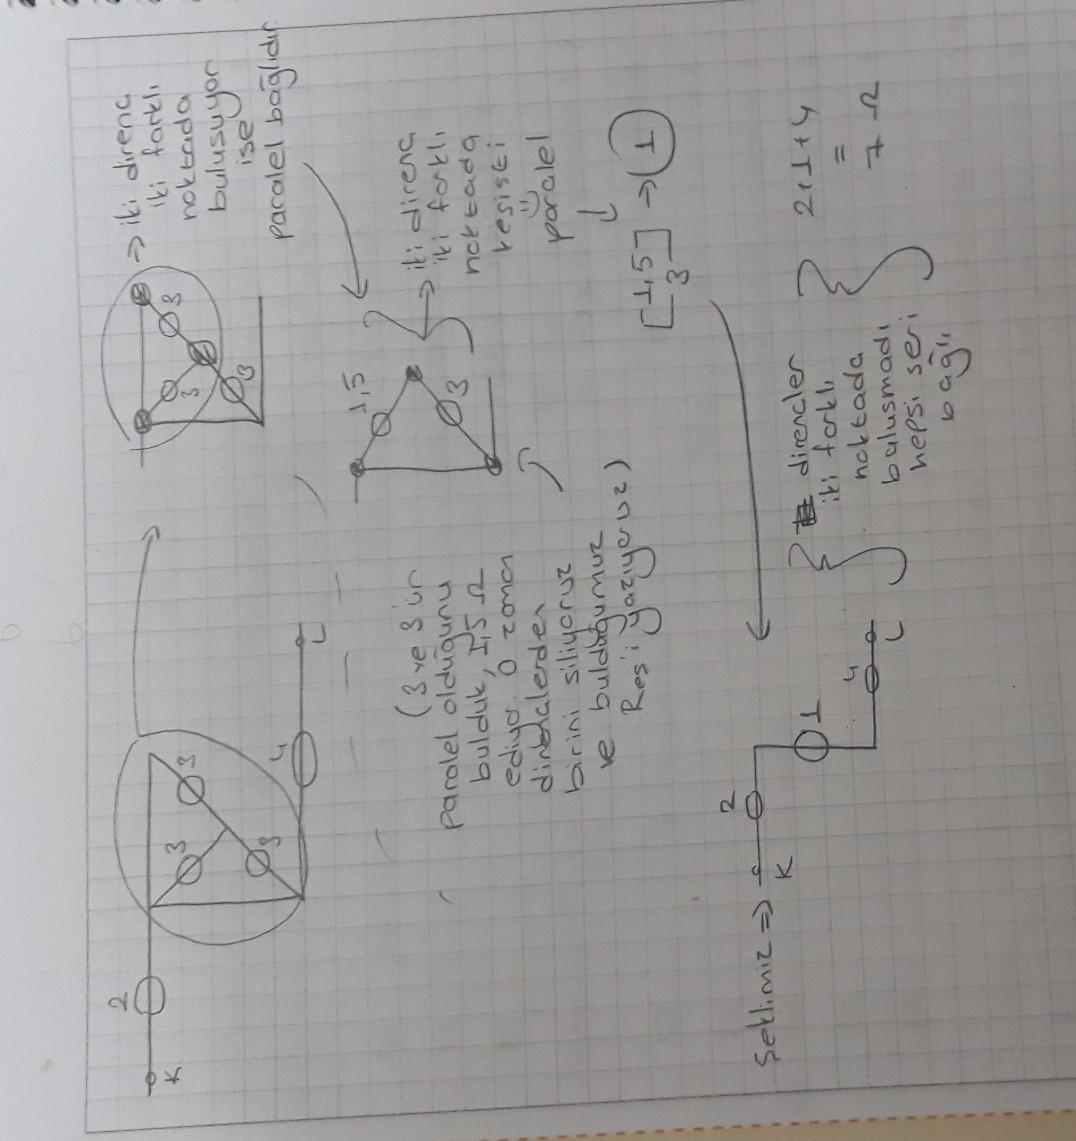 K
2
3
3
3
4
L
3
3
3
=> iki direnc
iki farklı
noktada
bulusuyor
ise
paralel bağlıdır
(3 ve 3'ün
paralel olduğunu
bulduk, 1,5 Ω
ediyo. O zaman
dirençlerden
birini siliyoruz
ve bulduğumuz
Res'i yazıyoruz)
1,5
3
=> iki direnc
iki farklı
noktada
kesisti
paralel
[1,5
3] => 1
Seklimiz =>
K
2
1
4
L
direncler
iki farklı
noktada
bulusmadı
hepsi seri
bağlı
2+1+4
=
7 Ω